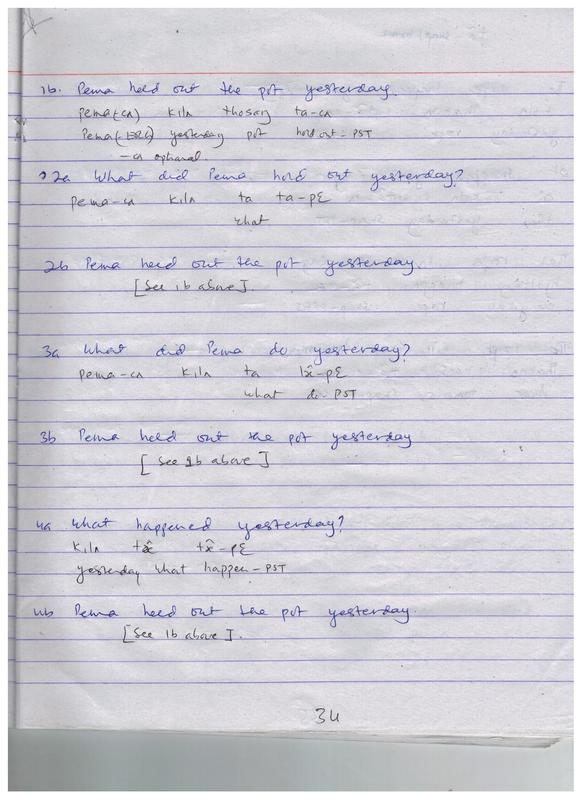 1b. Pema held out the pot yesterday.
pema(-cʌ) kilʌ thosaŋ ta-cʌ
Pema(-ERG) yesterday pot hold out-PST
-cʌ optional.
2a What did Pema hold out yesterday?
pema-cʌ kilʌ ta ta-pɛ
what
2b Pema held out the pot yesterday.
[See 1b above].
3a What did Pema do yesterday?
pema-cʌ kilʌ ta lx̂-pɛ
what do-PST
3b Pema held out the pot yesterday
[See 1b above]
4a What happened yesterday?
kilʌ tx̂ tx̂-pɛ
yesterday what happen-PST
4b Pema held out the pot yesterday.
[See 1b above].
34